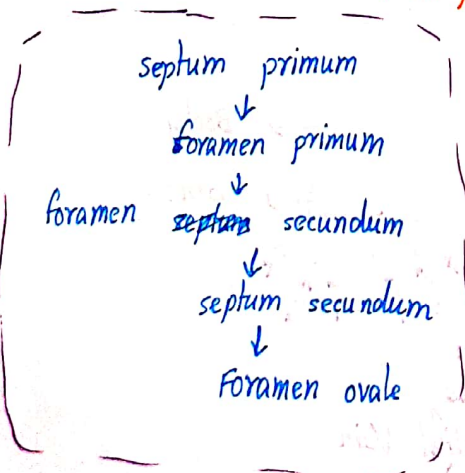 septum primum
↓
foramen primum
↓
foramen secundum
↓
septum secundum
↓
Foramen ovale